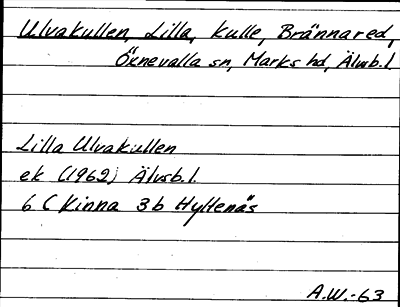 Ulvakullen, Lilla, kulle, Brännared,
Öxnevalla sn, Marks hd, Älvsb.l.
Lilla Ulvakullen
ek (1962) Älvsb.l.
6 C Kinna 3b Hyltenäs
A.W.-63